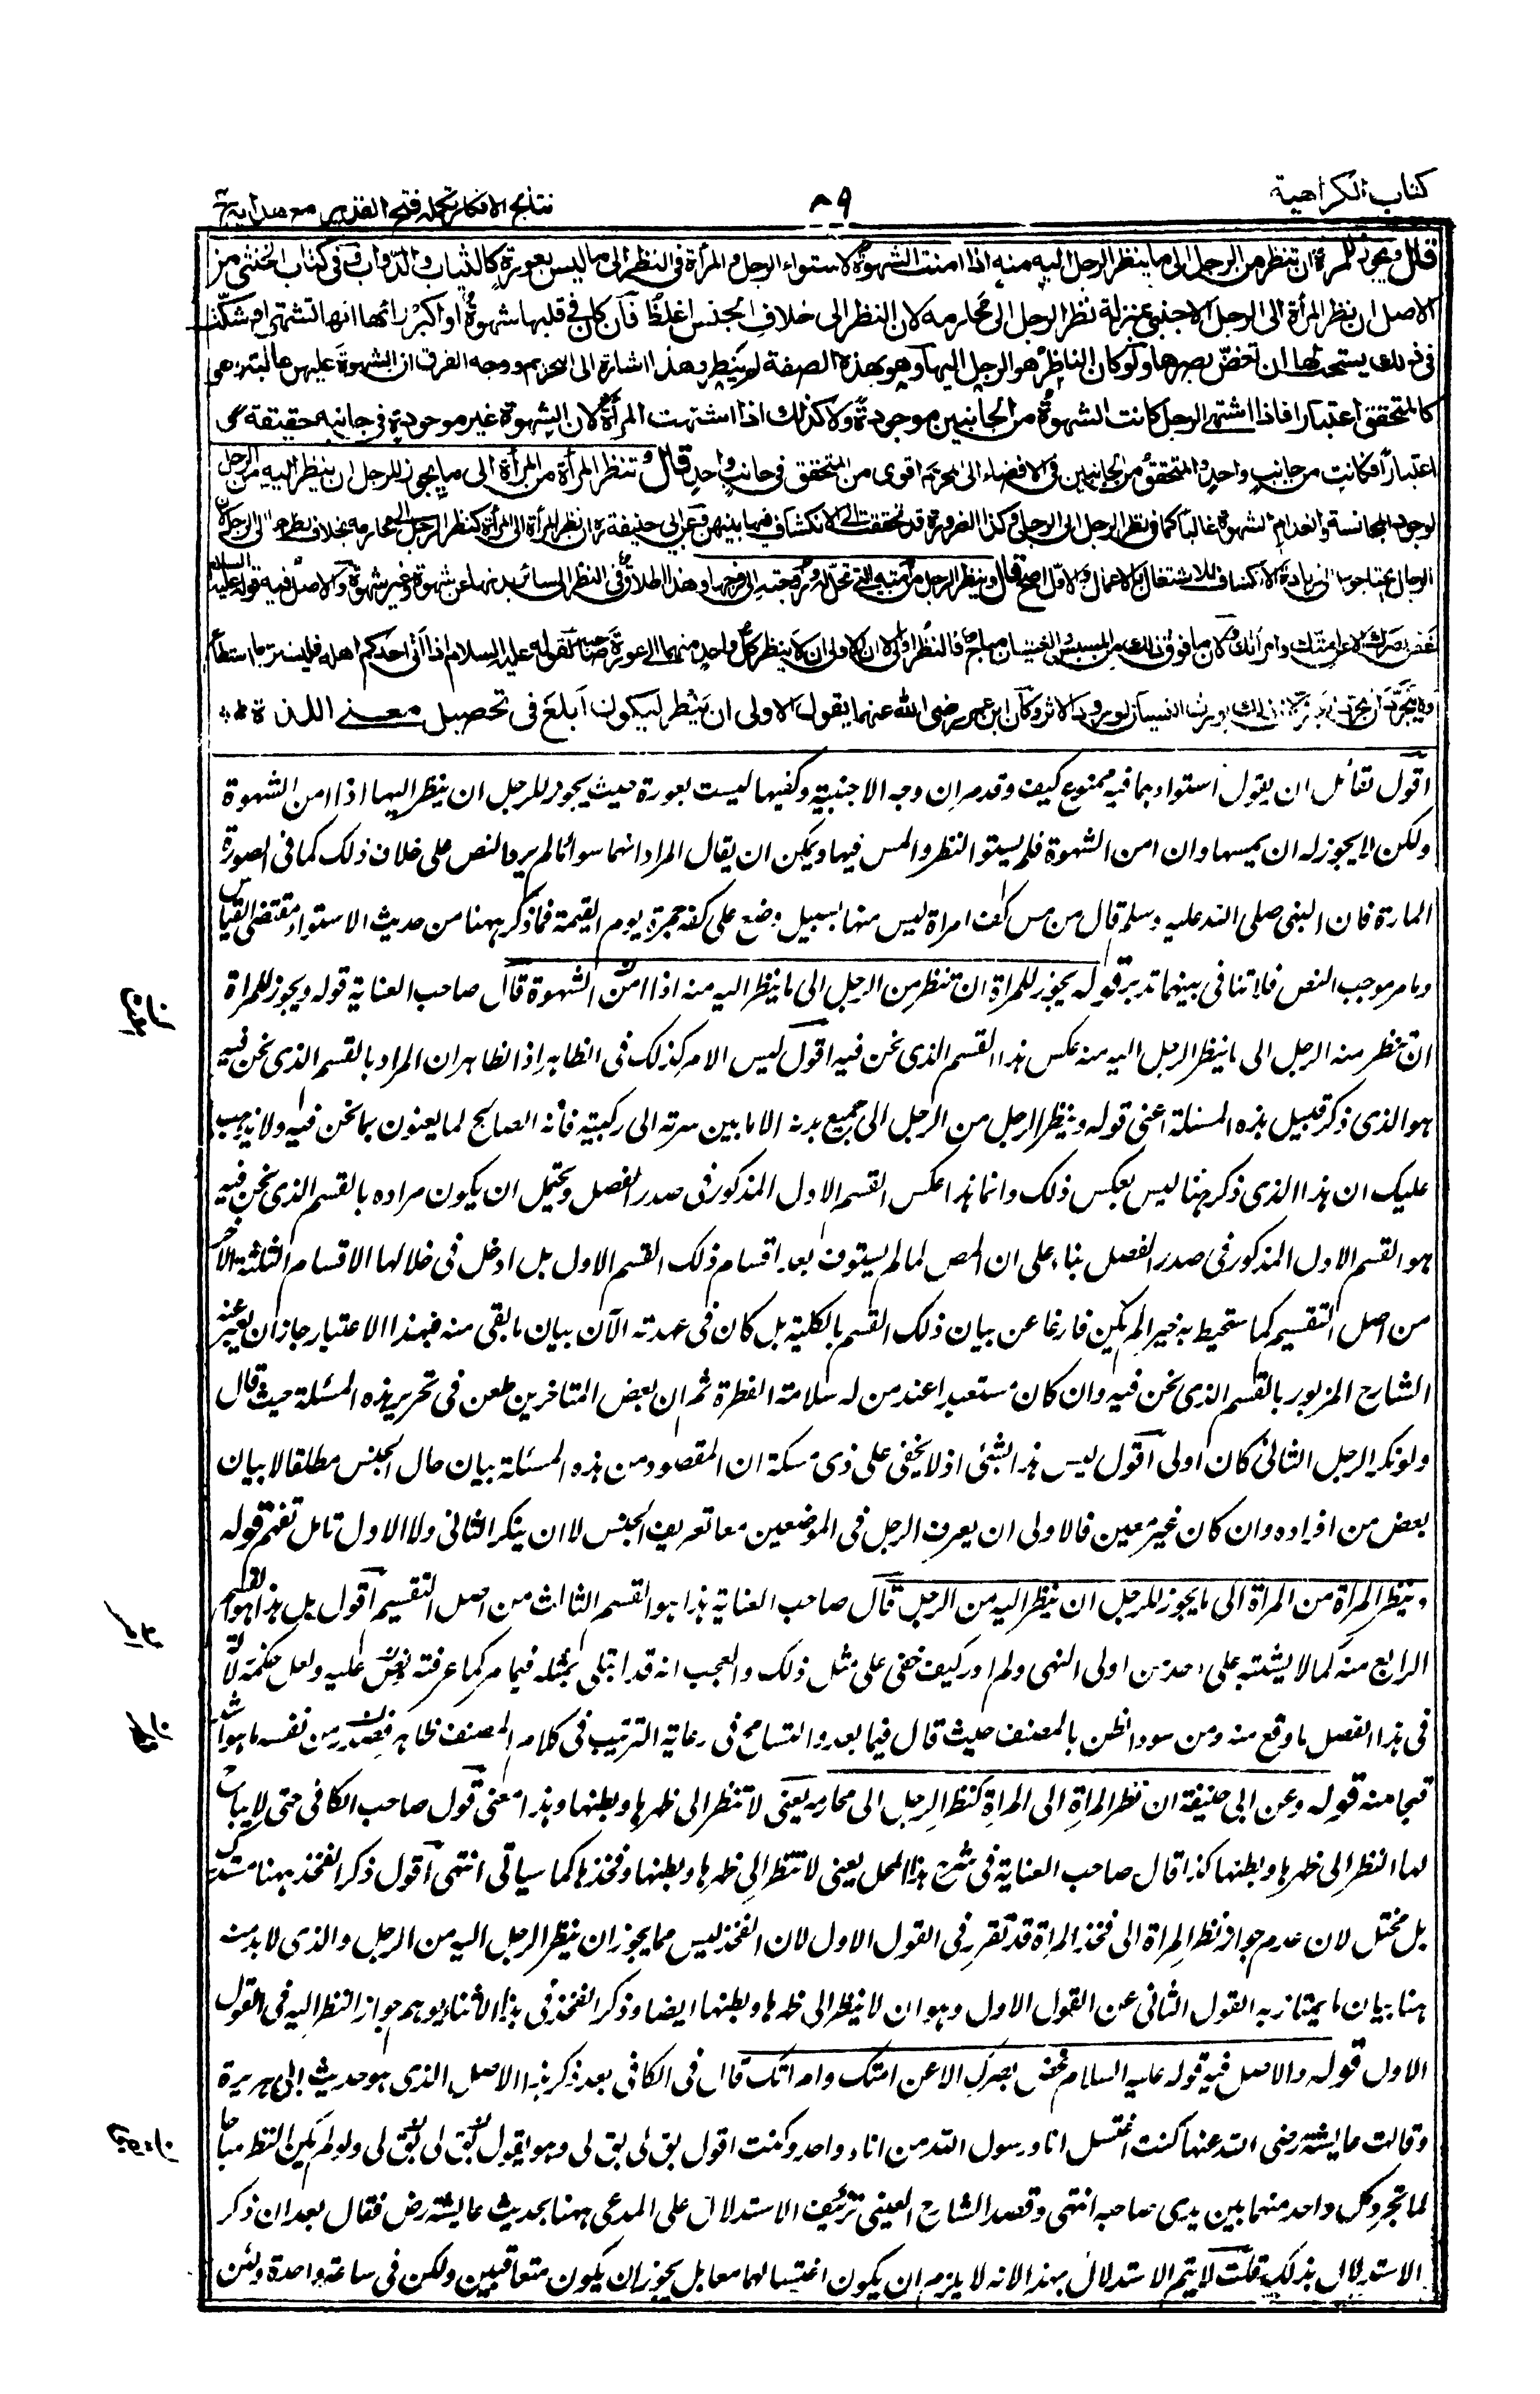 كتاب الكراهية
٨٩
نتائج الافكار تكملة فتح القدير مع هداية
قال ويجوز للمرأة ان تنظر من الرجل الى ما ينظر الرجل اليه منه اذا امنت الشهوة لاستواء الرجل والمرأة في النظر الى ما ليس بعورة كالثياب والدواب وفي كتاب الخنثى من
الاصل ان نظر المرأة الى الرجل الاجنبي بمنزلة نظر الرجل الى محارمه لان النظر الى خلاف الجنس اغلظ فان كان في قلبها شهوة او اكبر رائها انها تشتهي او شكت
في ذلك يستحب لها ان تغض بصرها ولو كان الناظر هو الرجل اليها وهو بهذه الصفة لم ينظر وهذا اشارة الى التحريم ووجه الفرق ان الشهوة عليهن غالبة وهو
كالمتحقق اعتبارا فاذا اشتهى الرجل كانت الشهوة من الجانبين موجودة ولا كذلك اذا اشتهت المرأة لان الشهوة غير موجودة في جانبه حقيقة و
اعتبارا فكانت من جانب واحد والمتحقق من الجانبين في الافضاء الى المحرم اقوى من المتحقق في جانب واحد قال وتنظر المرأة من المرأة الى ما يجوز للرجل ان ينظر اليه من الرجل
لوجود المجانسة وانعدام الشهوة غالبا كما في نظر الرجل الى الرجل وكذا الضرورة قد تحققت الى الانكشاف فيما بينهن وعن ابي حنيفة ره ان نظر المرأة الى المرأة كنظر الرجل الى محارمه بخلاف نظرها الى الرجل لان
الرجال يحتاجون الى زيادة الانكشاف للاشتغال بالاعمال والاول اصح قال وينظر الرجل من امته التي تحل له وزوجته الى فرجها وهذا اطلاق في النظر الى سائر بدنها عن شهوة وغير شهوة والاصل فيه قوله عليه السلام
غض بصرك الا عن امتك وامرأتك ولان ما فوق ذلك من المسيس والغشيان مباح فالنظر اولى الا ان الاولى ان لا ينظر كل واحد منهما الى عورة صاحبه لقوله عليه السلام اذا اتى احدكم اهله فليستتر ما استطاع
ولا يتجردان تجرد العير ولان ذلك يورث النسيان لورود الاثر وكان ابن عمر رضي الله عنهما يقول الاولى ان ينظر ليكون ابلغ في تحصيل معنى اللذة
اقول لقائل ان يقول استواءهما فيه ممنوع كيف وقد مر ان وجه الاجنبية وكفيها ليست بعورة حيث يجوز للرجل ان ينظر اليها اذا امن الشهوة
ولكن لا يجوز له ان يمسها وان امن الشهوة فلم يستو النظر والمس فيها ويمكن ان يقال المراد انهما سواء ما لم يرد النص على خلاف ذلك كما في الصورة
المارة فان النبي صلى الله عليه وسلم قال من مس كف امرأة ليس منها بسبيل وضع على كفه جمرة يوم القيمة فما ذكر ههنا من حديث الاستواء مقتضى القياس
وما مر موجب النص فلا تنافي بينهما تدبر قوله يجوز للمرأة ان تنظر من الرجل الى ما ينظر اليه منه اذا امن الشهوة قال صاحب العناية قوله ويجوز للمراة
ان تنظر منه الرجل الى ما ينظر الرجل اليه منه عكس هذا القسم الذي نحن فيه اقول ليس الامر كذلك في الظاهر اذ الظاهر ان المراد بالقسم الذي نحن فيه
هو الذي ذكر قبيل هذه المسئلة اعني قوله وينظر الرجل من الرجل الى جميع بدنه الا ما بين سرته الى ركبتيه فانه الصالح لما يعنون بما نحن فيه ولا يذهب
عليك ان هذا الذي ذكر ههنا ليس بعكس ذلك وانما هذا عكس القسم الاول المذكور في صدر الفصل ويحتمل ان يكون مراده بالقسم الذي نحن فيه
هو القسم الاول المذكور في صدر الفصل بناء على ان المص لما لم يستوف بعد اقسام ذلك القسم الاول بل ادخل في خلالها الاقسام الثلثة الاخر
من اصل التقسيم كما ستحيط به خبرا لم يكن فارغا عن بيان ذلك القسم بالكلية بل كان في عهدته الآن بيان ما بقي منه فبهذا الاعتبار جاز ان يعبر عنه
الشارح المزبور بالقسم الذي نحن فيه وان كان مستبعدا عند من له سلامة الفطرة ثم ان بعض المتاخرين طعن في تحرير هذه المسئلة حيث قال
ولو نكر الرجل الثاني كان اولى اقول ليس هذا بشئ اذ لا يخفى على ذي مسكة ان المقصود من هذه المسئلة بيان حال الجنس مطلقا لا بيان
بعض من افراده وان كان غير معين فالاولى ان يعرف الرجل في الموضعين معا تعريف الجنس لا ان ينكر الثاني ولا الاول تامل تفهم قوله
وينظر المراة من المراة الى ما يجوز للرجل ان ينظر اليه من الرجل قال صاحب العناية هذا هو القسم الثالث من اصل التقسيم اقول بل هذا هو القسم
الرابع منه كما لا يشتبه على احد من اولى النهى ولم ادر كيف خفى على مثل ذلك والعجب انه قد ابتلى بمثله فيما مر كما عرفته عليه ولعل حكمة
في هذا الفصل ما وقع منه ومن سوء الظن بالمصنف حيث قال فيما بعد والتسامح في رعاية الترتيب في كلام المصنف ظاهر فصدر من نفسه ما هو اشد
قبحا منه قوله وعن ابي حنيفة ان نظر المراة الى المراة كنظر الرجل الى محارمه يعنى لا تنظر الى ظهرها وبطنها وهذا معنى قول صاحب الكافي حتى لا يباح
لها النظر الى ظهرها وبطنها كذا قال صاحب العناية في شرح هذا المحل يعنى لا تنظر الى ظهرها وبطنها وفخذها كما سياتي انتهى اقول ذكر الفخذ ههنا مستدرك
بل مختل لان عدم جواز نظر المراة الى فخذ المراة قد تقرر في القول الاول لان الفخذ ليس مما يجوز ان ينظر الرجل اليه من الرجل والذي لا بد منه
ههنا بيان ما يمتاز به القول الثاني عن القول الاول وهو ان لا ينظر الى ظهرها وبطنها ايضا وذكر الفخذ في هذا الاثناء يوهم جواز النظر اليه في القول
الاول قوله والاصل فيه قوله عليه السلام غض بصرك الا عن امتك وامراتك قال في الكافي بعد ذكر هذا الاصل الذي هو حديث ابي هريرة
وقالت عايشة رضى الله عنها كنت اغتسل انا ورسول الله من اناء واحد وكنت اقول بق لي بق لي وهو يقول بق لي بق لي ولو لم يكن النظر مباحا
لما تجرد كل واحد منهما بين يدى صاحبه انتهى وقصد الشارح العيني تزئيف الاستدلال على المدعى ههنا بحديث عايشة رض فقال بعد ان ذكر
الاستدلال بذلك قلت لا يتم الاستدلال بهذا لانه لا يلزم ان يكون اغتسالهما معا بل يجوز ان يكون متعاقبين ولكن في ساعة واحدة ولئن